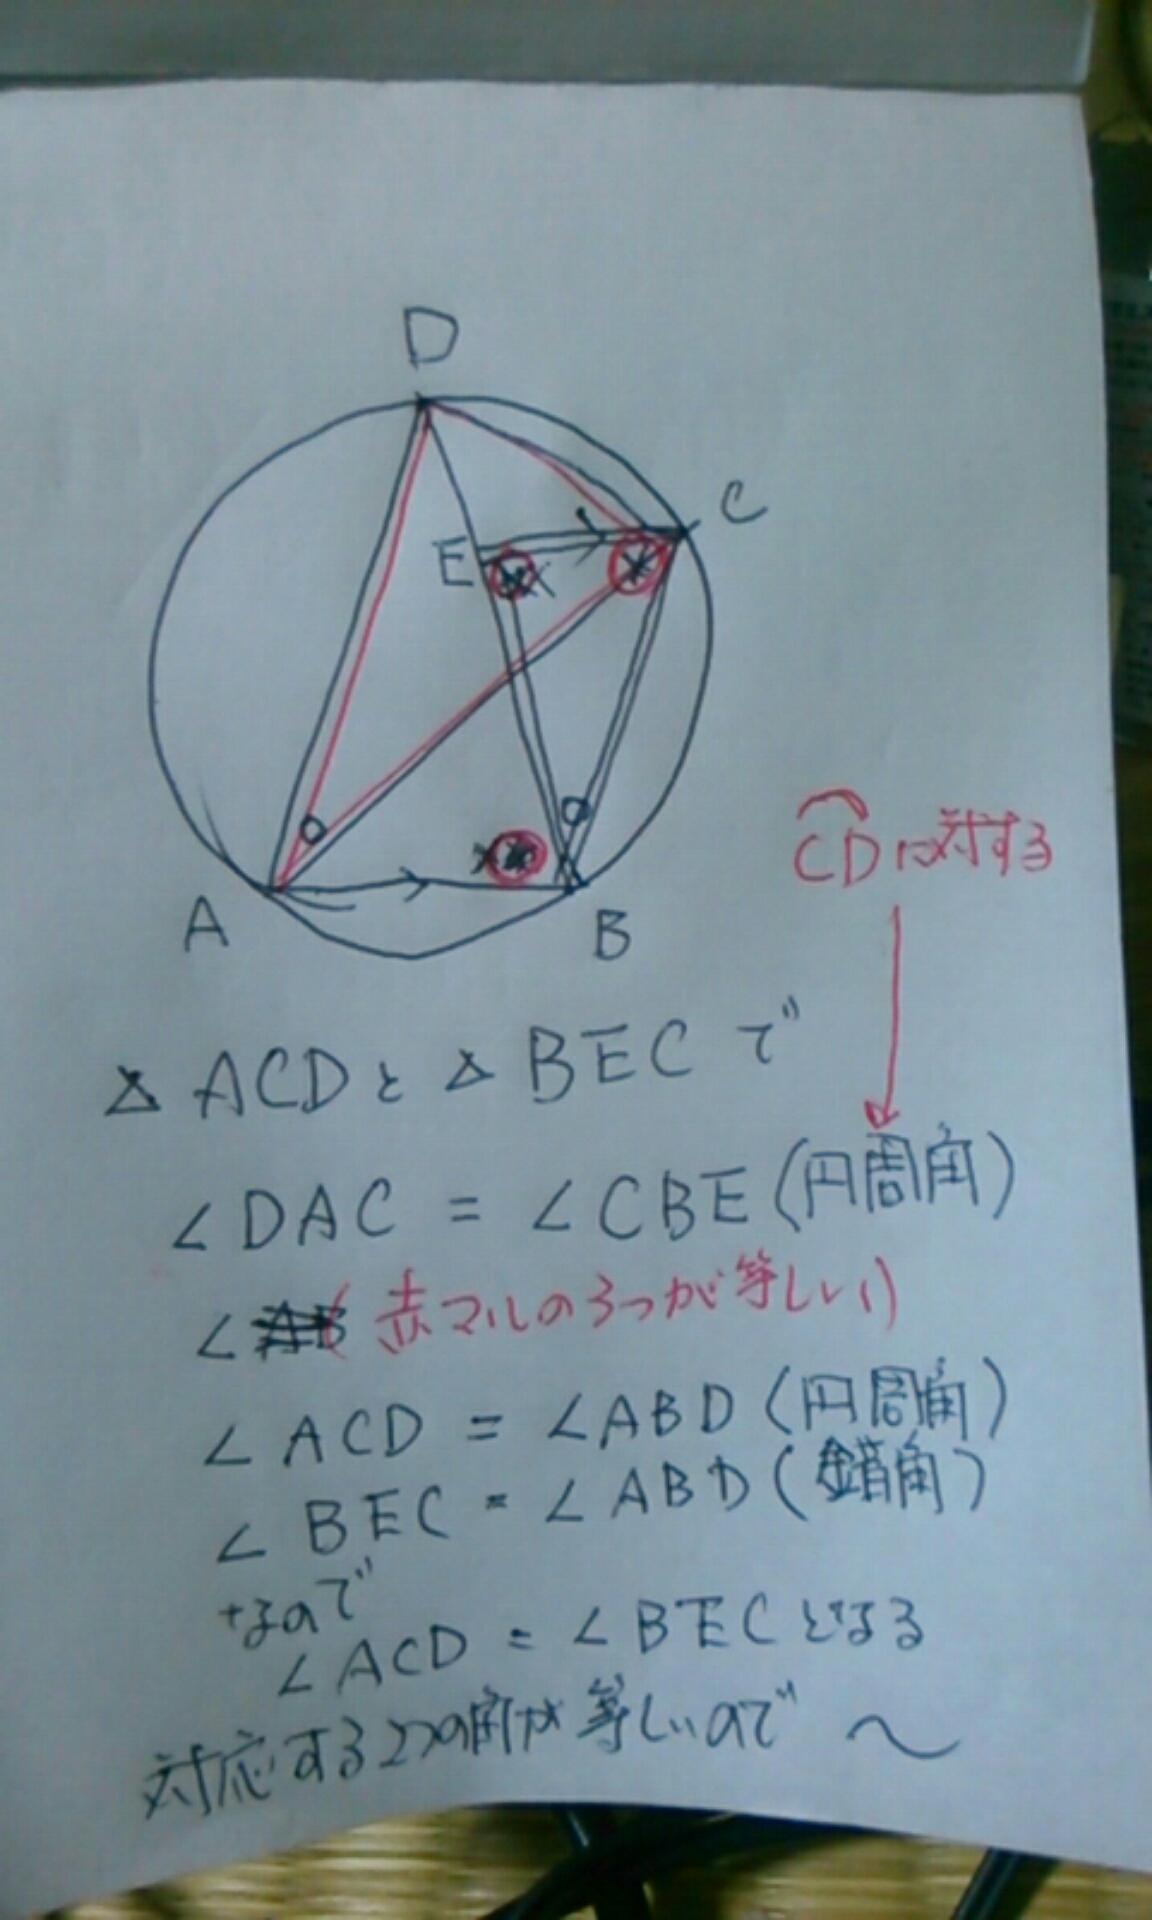 D
C
E
A
B
CDに対する
△ACDと△BECで
∠DAC = ∠CBE(円周角)
∠
(赤マルの3つが等しい)
∠ACD = ∠ABD(円周角)
∠BEC = ∠ABD(錯角)
なので
∠ACD = ∠BECとなる
対応する2つの角が等しいので〜